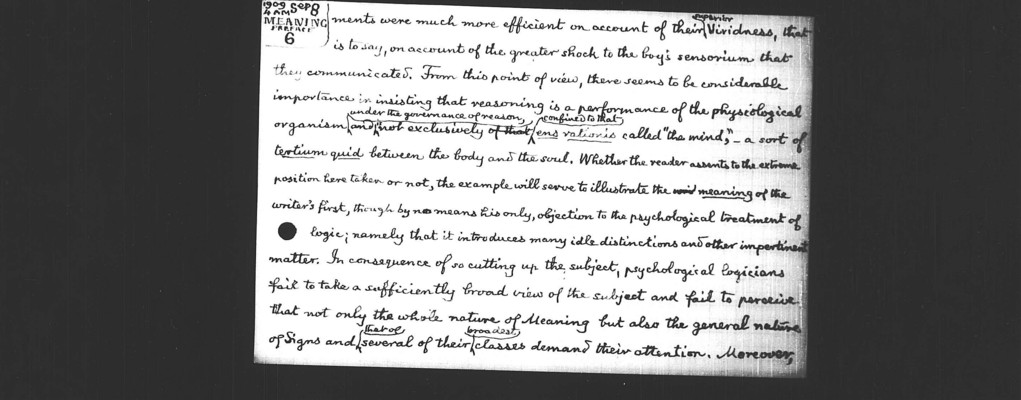 1909 Sep 8
4 AM
MEANING
PREFACE
6
ments were much more efficient on account of their superior Vividness, that
is to say, on account of the greater shock to the boy's sensorium that
they communicated. From this point of view, there seems to be considerable
importance in insisting that reasoning is a performance of the physiological
organism under the governance of reason, and not exclusively of that confined to that ens rationis called "the mind," – a sort of
tertium quid between the body and the soul. Whether the reader assents to the extreme
position here taken or not, the example will serve to illustrate the meaning of the
writer's first, though by no means his only, objection to the psychological treatment of
logic; namely that it introduces many idle distinctions and other impertinent
matter. In consequence of so cutting up the subject, psychological logicians
fail to take a sufficiently broad view of the subject and fail to perceive
that not only the whole nature of Meaning but also the general nature
of Signs and that of several of their broadest classes demand their attention. Moreover,